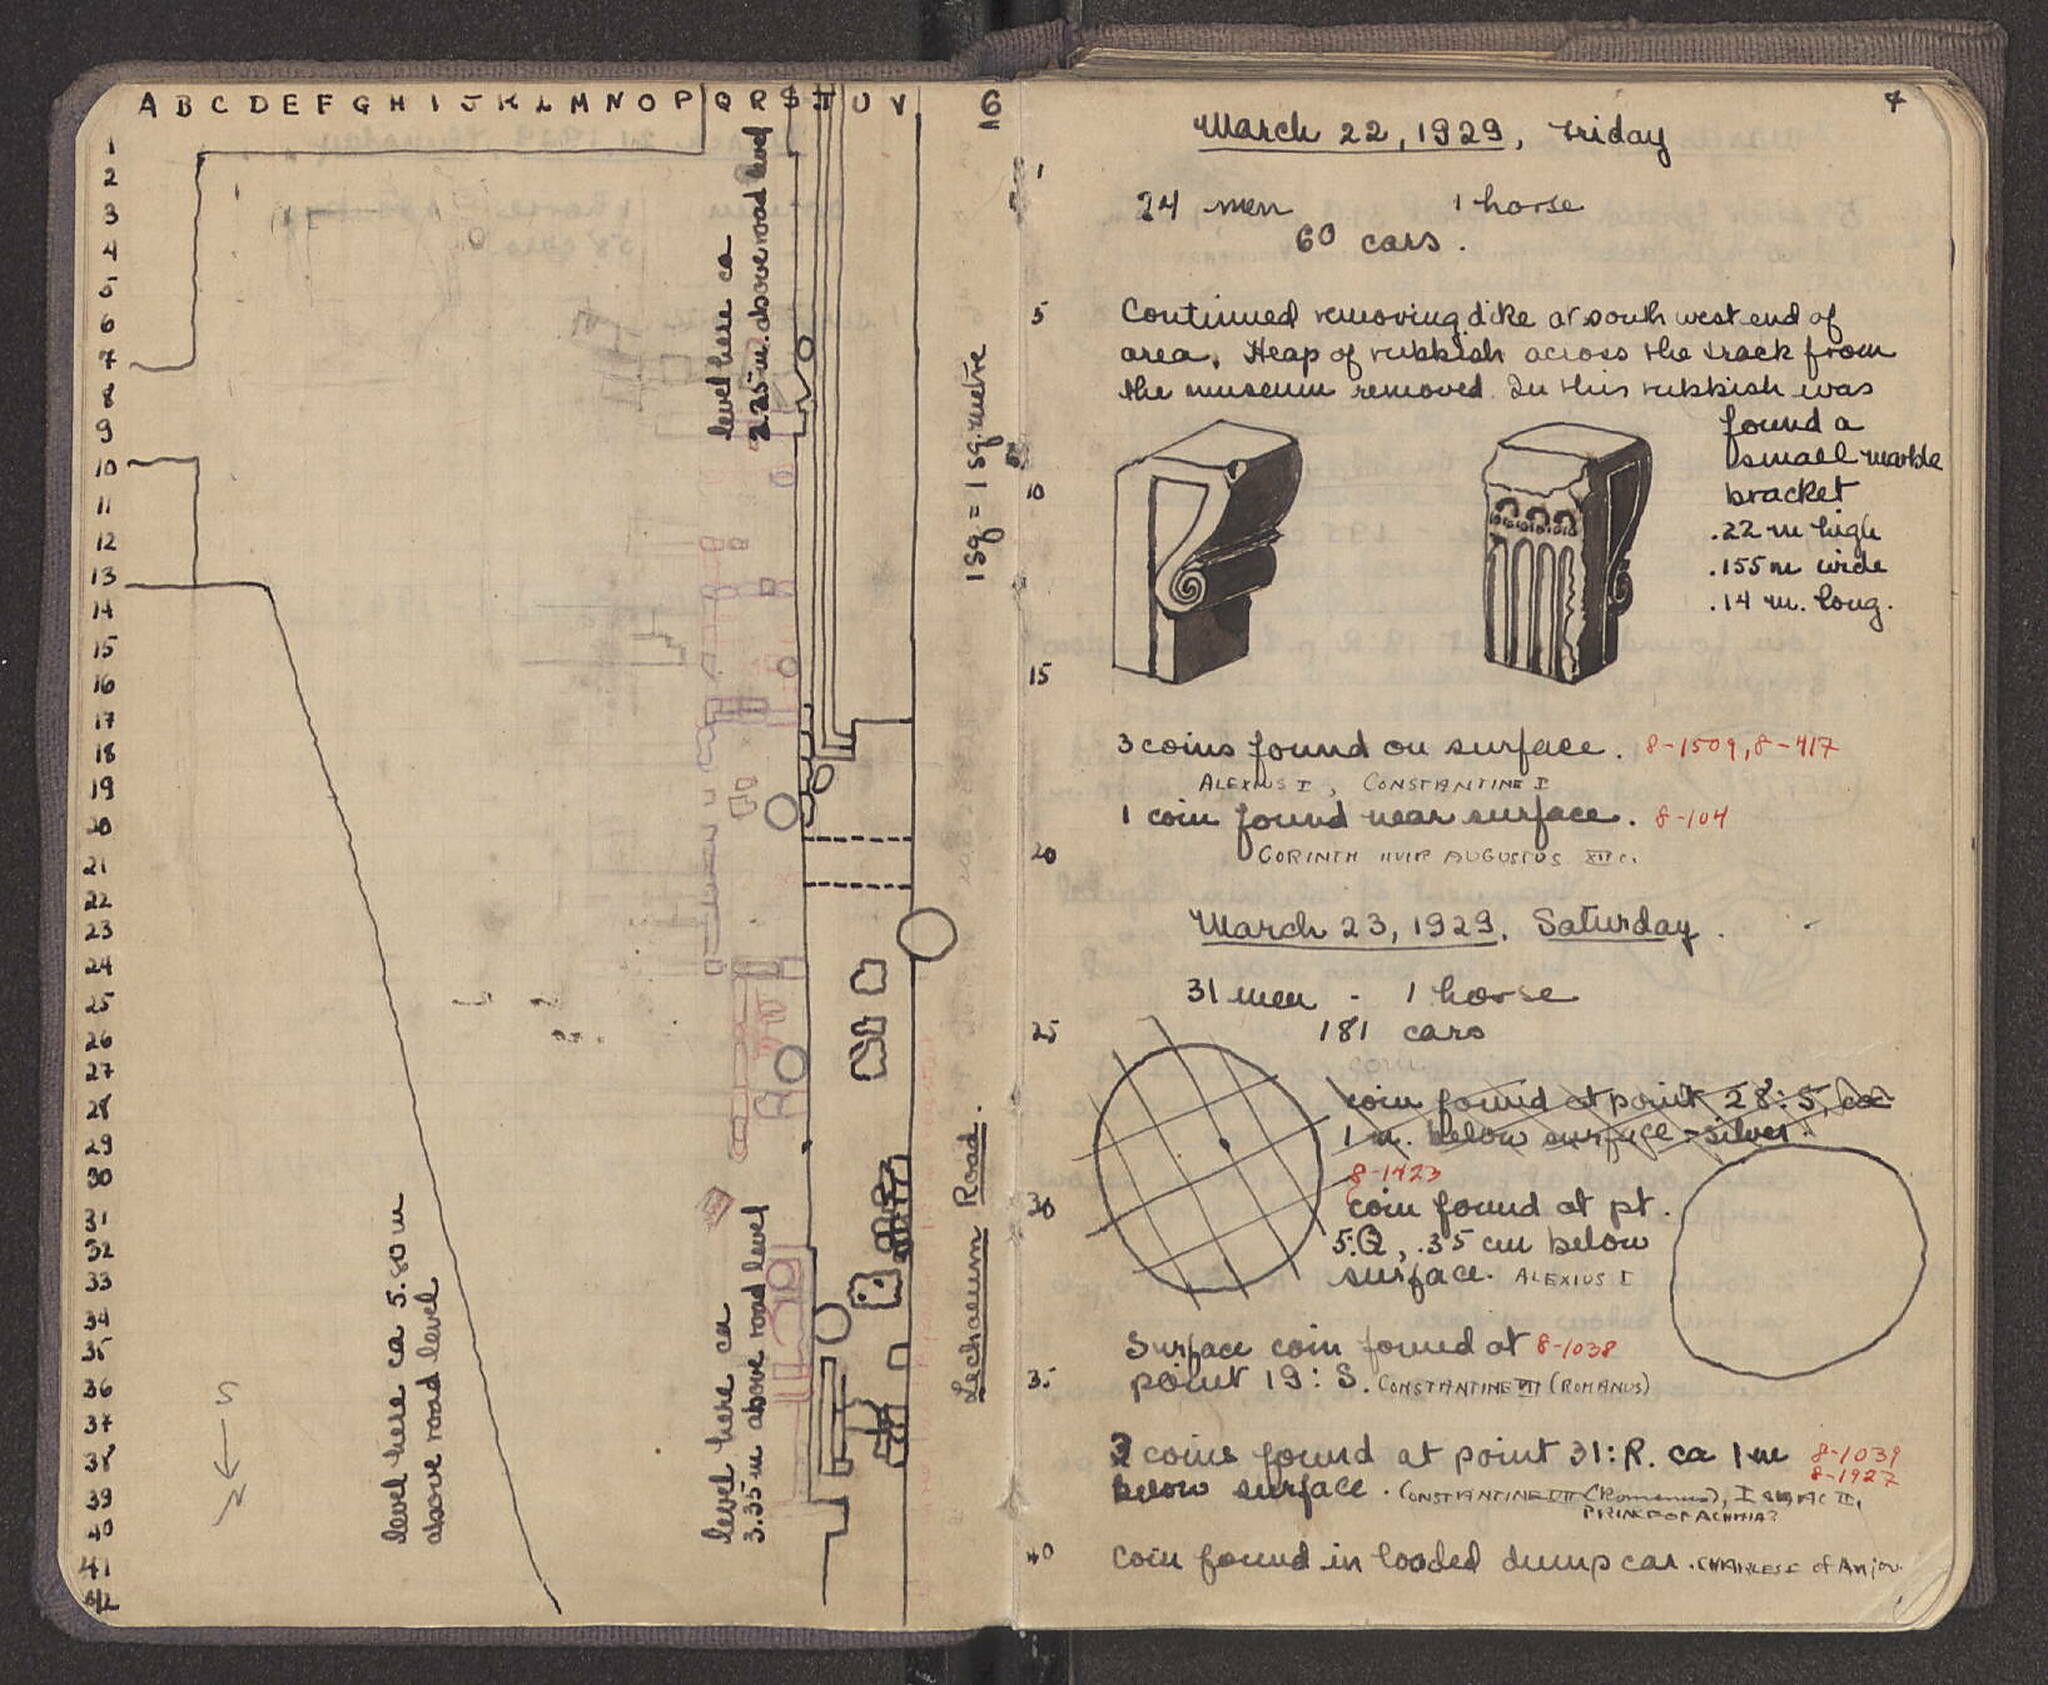 A B C D E F G H I J K L M N O P Q R S T U V
6
1
2
3
4
5
6
7
8
9
10
11
12
13
14
15
16
17
18
19
20
21
22
23
24
25
26
27
28
29
30
31
32
33
34
35
36
37
38
39
40
41
42
level here ca
2.25 m. above road level
1 sq = 1 sq. metre
level here ca 5.80 m
above road level
level here ca
3.35 m above road level
Lechaeum Road.
S
N
7
March 22, 1929, Friday
1
24 men 1 horse
60 cars.
5
Continued removing dike at south west end of
area. Heap of rubbish across the track from
the museum removed. In this rubbish was
found a
small marble
bracket
.22 m high
.155 m wide
.14 m. long.
10
15
3 coins found on surface. 8-1509, 8-417
ALEXIUS I, CONSTANTINE I
1 coin found near surface. 8-104
20
CORINTH IIVIR AUGUSTUS
March 23, 1929, Saturday.
31 men - 1 horse
25
181 cars
coin
coin found at point 28:S,
1 m. below surface - silver.
8-1423
30
coin found at pt.
5.Q, .35 cm below
surface. ALEXIUS I
Surface coin found at 8-1038
35
point 19:S. CONSTANTINE VII (ROMANUS)
2 coins found at point 31:R. ca 1 m 8-1039
8-1927
below surface. CONSTANTINE VII (Romanus), ISAAC II,
PRINCE OF ACHAIA?
40
Coin found in loaded dump car. CHARLES I of Anjou.